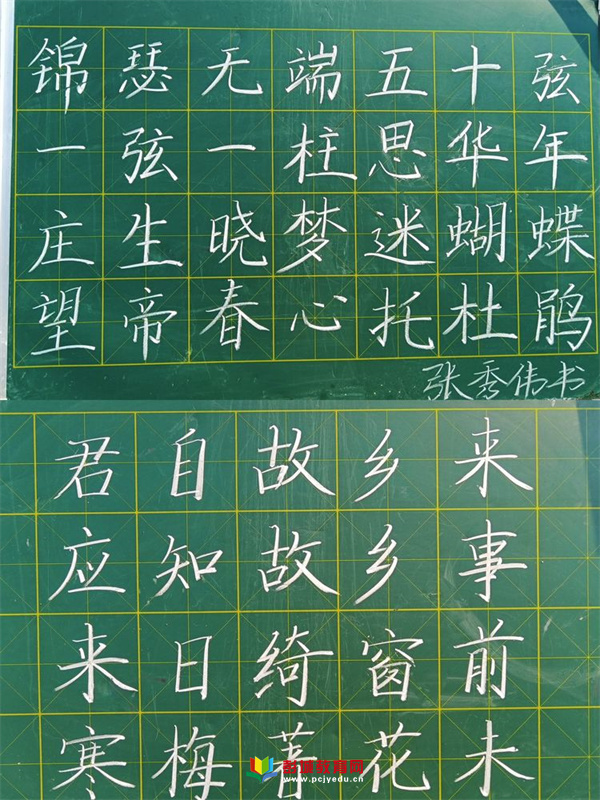 锦瑟无端五十弦
一弦一柱思华年
庄生晓梦迷蝴蝶
望帝春心托杜鹃
张秀伟书
君自故乡来
应知故乡事
来日绮窗前
寒梅著花未
彭城教育网
www.pcjyedu.cn